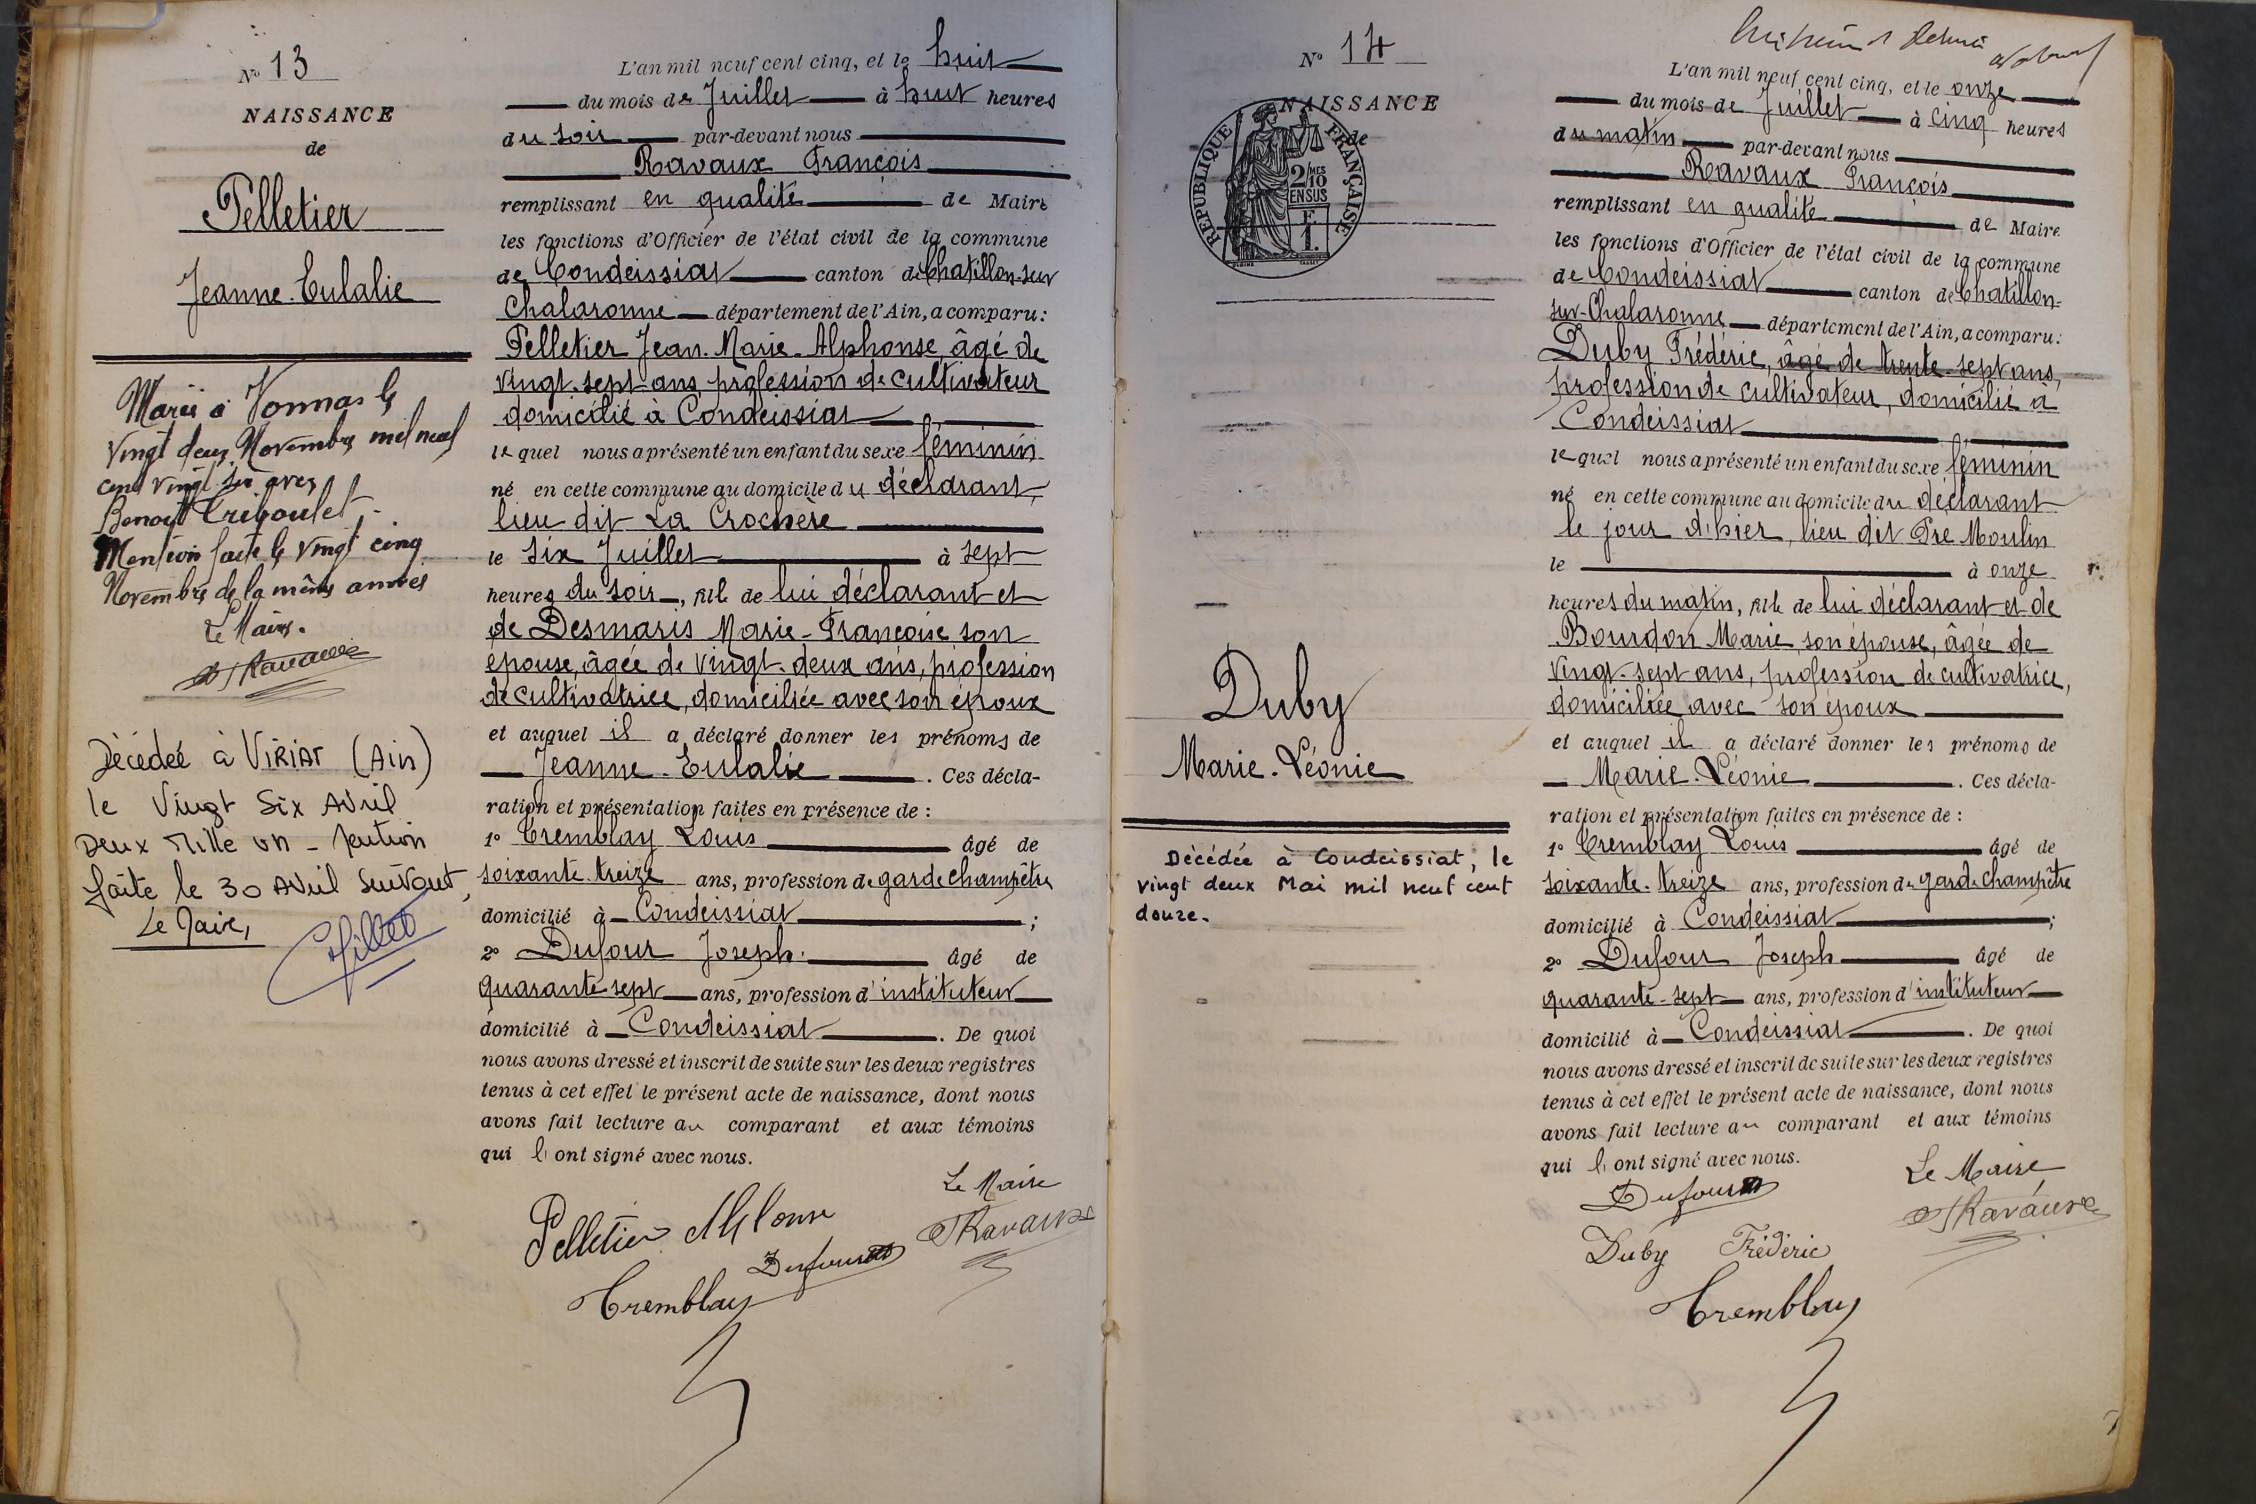 N° 13
NAISSANCE
de
Pelletier
Jeanne-Eulalie
Mariée à Vonnas le
vingt deux Novembre mil neuf
cent vingt six avec
Benoit Triboulet.
Mention faite le vingt cinq
Novembre de la même année
Le Maire.
Ravaux
Décédée à VIRIAT (Ain)
le Vingt Six Avril
Deux Mille un - Mention
faite le 30 Avril Suivant,
Le Maire,
L'an mil neuf cent cinq, et le huit
du mois de Juillet à huit heures
du soir par-devant nous
Ravaux François
remplissant en qualité de Maire
les fonctions d'Officier de l'état civil de la commune
de Condeissiat canton de Chatillon-sur
Chalaronne département de l'Ain, a comparu :
Pelletier Jean-Marie-Alphonse, âgé de
vingt-sept ans, profession de cultivateur
domicilié à Condeissiat
lequel nous a présenté un enfant du sexe féminin
né en cette commune au domicile du déclarant,
lieu dit La Crochère
le six Juillet à sept
heures du soir, fille de lui déclarant et
de Desmaris Marie-Françoise son
épouse, âgée de vingt-deux ans, profession
de cultivatrice, domiciliée avec son époux
et auquel il a déclaré donner les prénoms de
Jeanne-Eulalie. Ces décla-
ration et présentation faites en présence de :
1° Tremblay Louis âgé de
soixante-treize ans, profession de garde champêtre
domicilié à Condeissiat ;
2° Dufour Joseph âgé de
quarante sept ans, profession d'instituteur
domicilié à Condeissiat. De quoi
nous avons dressé et inscrit de suite sur les deux registres
tenus à cet effet le présent acte de naissance, dont nous
avons fait lecture au comparant et aux témoins
qui l'ont signé avec nous.
Le Maire
Pelletier Alphonse
Ravaux
Dufour
Tremblay
N° 14
NAISSANCE
de
RÉPUBLIQUE FRANÇAISE
2/10
MES
EN SUS
1 F.
Duby
Marie-Léonie
Décédée à Condeissiat, le
vingt deux Mai mil neuf cent
douze.
L'an mil neuf cent cinq, et le onze
du mois de Juillet à cinq heures
du matin par-devant nous
Ravaux François
remplissant en qualité de Maire
les fonctions d'Officier de l'état civil de la commune
de Condeissiat canton de Chatillon-
sur-Chalaronne département de l'Ain, a comparu :
Duby Frédéric, âgé de trente-sept ans,
profession de cultivateur, domicilié à
Condeissiat
lequel nous a présenté un enfant du sexe féminin
né en cette commune au domicile du déclarant
le jour d'hier, lieu dit Pre Moulin
le à onze
heures du matin, fille de lui déclarant et de
Bourdon Marie, son épouse, âgée de
vingt-sept ans, profession de cultivatrice,
domiciliée avec son époux
et auquel il a déclaré donner les prénoms de
Marie-Léonie. Ces décla-
ration et présentation faites en présence de :
1° Tremblay Louis âgé de
soixante-treize ans, profession de garde champêtre
domicilié à Condeissiat ;
2° Dufour Joseph âgé de
quarante-sept ans, profession d'instituteur
domicilié à Condeissiat. De quoi
nous avons dressé et inscrit de suite sur les deux registres
tenus à cet effet le présent acte de naissance, dont nous
avons fait lecture au comparant et aux témoins
qui l'ont signé avec nous.
Le Maire
Dufour
Ravaux
Duby Frédéric
Tremblay